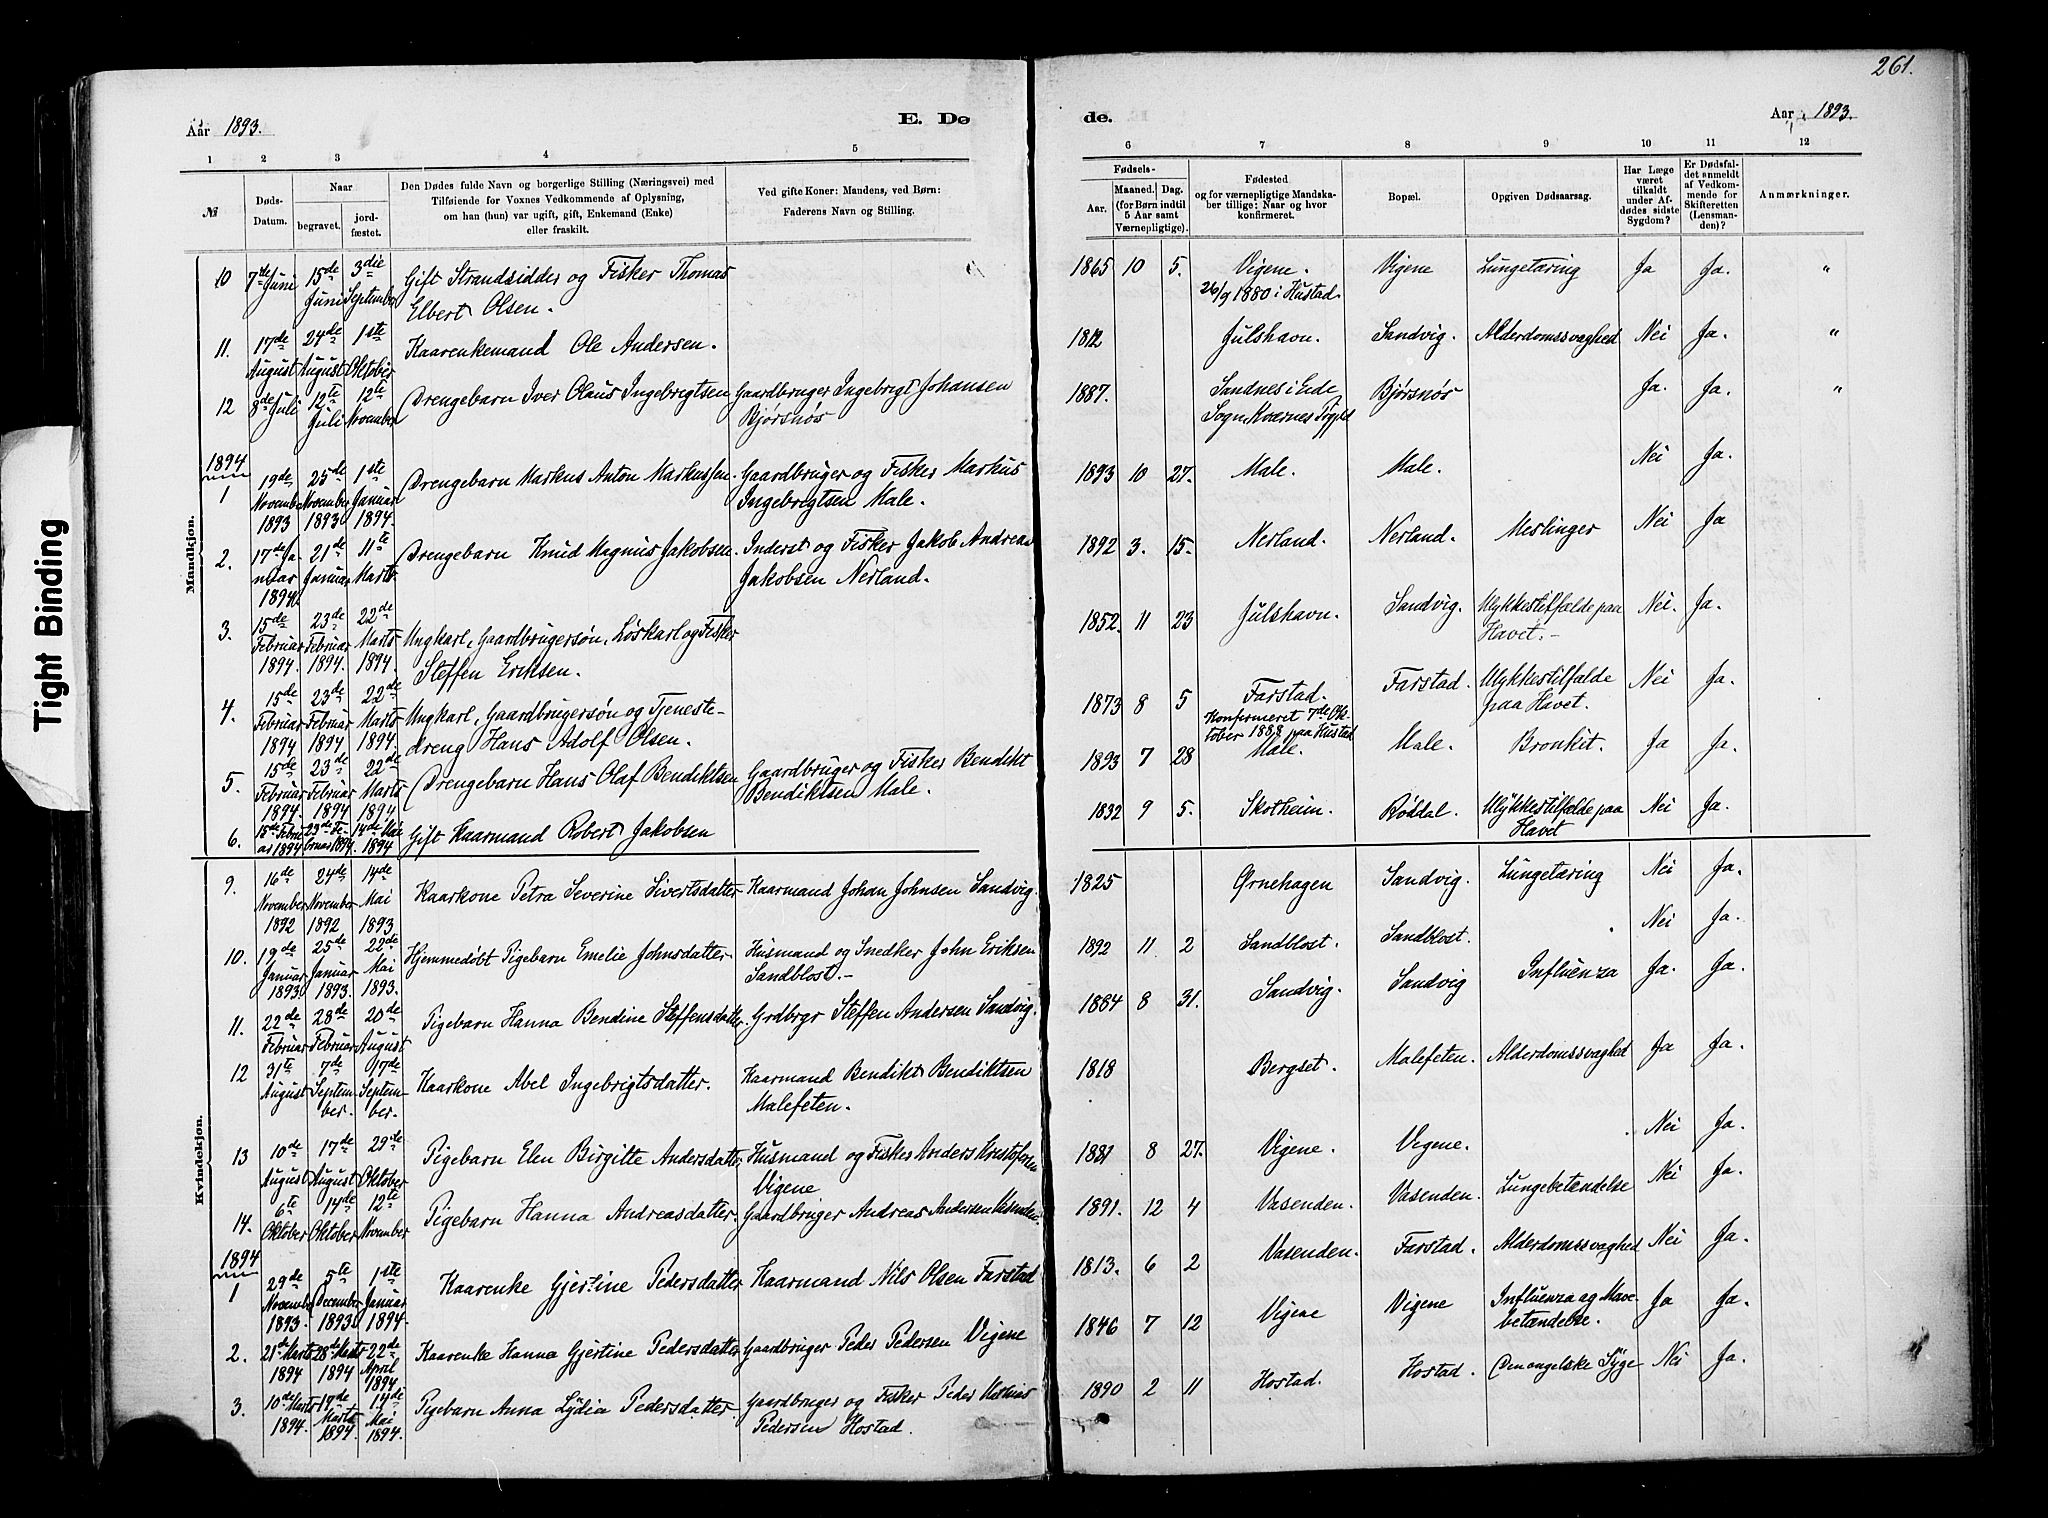 261.
Aar 1893.
E. Dø
de.
Aar 1893.
1 2 3 4 5
6 7 8 9 10 11 12
№
Døds-Datum.
Naar
begravet.
jordfæstet.
Den Dødes fulde Navn og borgerlige Stilling (Næringsvei) med
Tilføiende for Voxnes Vedkommende af Oplysning,
om han (hun) var ugift, gift, Enkemand (Enke)
eller fraskilt.
Ved gifte Koner: Mandens, ved Børn:
Faderens Navn og Stilling.
Fødsels-
Aar.
Maaned. Dag.
(for Børn indtil
5 Aar samt
Værnepligtige).
Fødested
og for værnepligtige Mandska-
ber tillige: Naar og hvor
konfirmeret.
Bopæl.
Opgiven Dødsaarsag.
Har Læge
været
tilkaldt
under Af-
dødes sidste
Sygdom?
Er Dødsfal-
det anmeldt
af Vedkom-
mende for
Skifteretten
(Lensman-
den)?
Anmærkninger.
Tight Binding
Mandkjøn.
10 7de Juni 15de Juni 3die September Gift Strandsidder og Fisker Thomas
Elbert Olsen. 1865 10 5. Vigene. Vigene Lungetæring Ja Ja. "
26/9 1880 i Hustad.
11. 17de August 24de August 1ste Oktober Kaarenkemand Ole Andersen. 1812 Julshavn. Sandvig. Alderdomssvaghed Nei Ja. "
12 8de Juli 12te Juli 12te November Drengebarn Iver Olaus Ingebrigtsen Gaardbruger Ingebrigt Johansen
Bjørsnøs 1887. Sandnes i Eide Bjørsnøs Ja. Ja. "
Sogn, Kværnes
1894
1 19de November 1893 25de November 1893 1ste Januar 1894. Drengebarn Markus Anton Markussen. Gaardbruger og Fisker Markus
Ingebrigtsen Male. 1893 10 27. Male. Male. Nei Ja.
2. 17de Januar 1894. 21de Januar 11te Marts Drengebarn Knud Magnus Jakobsen. Inderst og Fisker Jakob Andreas
Jakobsen Nerland. 1892 3. 15. Nerland. Nerland. Meslinger Nei Ja
3. 15de Februar 1894. 23de Februar 1894. 22de Marts 1894. Ungkarl, Gaardbrugersøn, Løskarl og Fisker
Steffen Eriksen. 1852. 11 23 Julshavn. Sandvig. Ulykkestilfælde paa
Havet.- Nei. Ja.
4. 15de Februar 1894 23de Februar 1894 22de Marts 1894. Ungkarl, Gaardbrugersøn og Tjeneste-
dreng Hans Adolf Olsen. 1873 8 5 Farstad. Farstad. Ulykkestilfælde
paa Havet. Nei Ja.
Konfirmeret 7de Ok-
tober 1888 paa Hustad
5. 15de Februar 1894. 23de Februar 1894 22de Marts 1894 Drengebarn Hans Olaf Bendiktsen Gaardbruger og Fisker Bendikt
Bendiktsen Male. 1893 7 28 Male. Male. Bronkit. Ja Ja.
6. 15de Februar 1894 23de Februar 1894. 14de Mai 1894 Gift Kaarmand Robert Jakobsen 1832 9 5. Skotheim. Røddal. Ulykkestilfælde paa
Havet Nei Ja.
Kvindekjøn.
9. 16de November 1892 24de November 1892 14de Mai 1893 Kaarkone Petra Severine Sivertsdatter Kaarmand Johan Johnsen Sandvig. 1825 Ørnehagen Sandvig. Lungetæring Nei Ja.
10. 19de Januar 1893 25de Januar 1893. 22de Mai 1893. Hjemmedøbt Pigebarn Emelie Johnsdatter. Husmand og Snedker John Eriksen
Sandblost.- 1892 11 2 Sandblost. Sandblost. Nei Ja.
11. 22de Februar 28de Februar 20de August Pigebarn Hanna Bendine Steffensdatter. Grdbrgr Steffen Andersen Sandvig. 1884 8 31. Sandvig. Sandvig Influenza Ja. Ja.
12 31te August 7de September. 17de September. Kaarkone Abel Ingebrigtsdatter. Kaarmand Bendikt Bendiktsen
Malefeten. 1818 Bergset. Malefeten. Alderdomssvaghed Ja Ja.
13 10de August 17de August 29de Oktober Pigebarn Elen Birgitte Andersdatter. Husmand og Fisker Anders Kristofersen
Vigene 1881 8 27. Vigene. Vegene. Nei Ja.
14. 6te Oktober 14de Oktober 12te November Pigebarn Hanna Andreasdatter. Gaardbruger Andreas Andersen Vasenden. 1891. 12 4 Vasenden. Vasenden. Lungebetændelse Nei Ja.
1894
1 29de November 1893. 5te December 1893 1ste Januar 1894. Kaarenke Gjertine Pedersdatter Kaarmand Nils Olsen Farstad 1813. 6 2 Vasenden. Farstad. Alderdomssvaghed Nei Ja.
2. 21de Marts 1894 28de Marts 1894 22de April 1894 Kaarenke Hanna Gjertine Pedersdatter Gaardbruger Peder Pedersen Vigene 1846 7 12 Vigene Vigene Influenza og Mave-
betændelse. Ja Ja.
3. 10de Marts 1894. 17de Marts 1894. 14de Mai 1894. Pigebarn Anna Lydia Pedersdatter. Gaardbruger og Fisker Peder Mathias
Pedersen Hostad. 1890 2 11 Hostad. Hostad. Den engelske Syge Nei Ja.